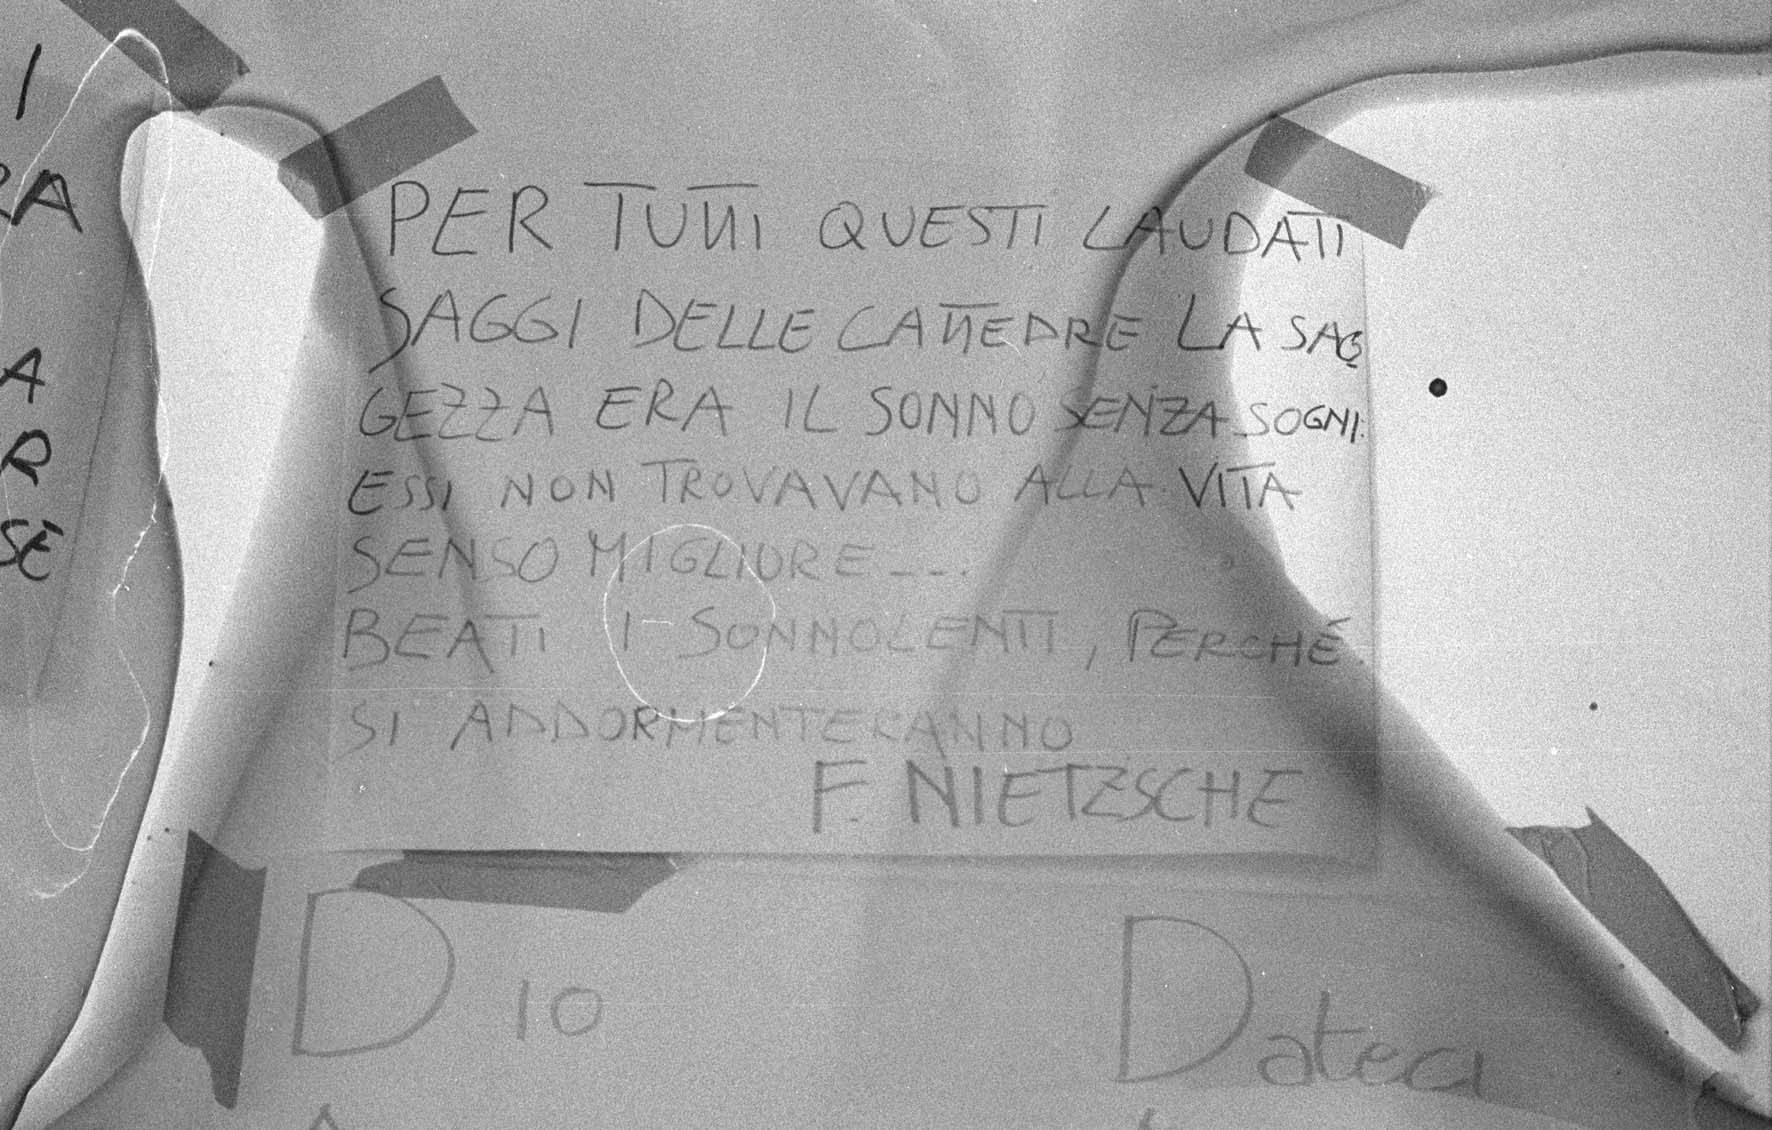 PER TUTTI QUESTI LAUDATI
SAGGI DELLE CATTEDRE LA SAG
GEZZA ERA IL SONNO SENZA SOGNI.
ESSI NON TROVAVANO ALLA VITA
SENSO MIGLIORE---.
BEATI I SONNOLENTI, PERCHÉ
SI ADDORMENTERANNO
F. NIETZSCHE
DIO
Dateci
I
RA
A
R
SE